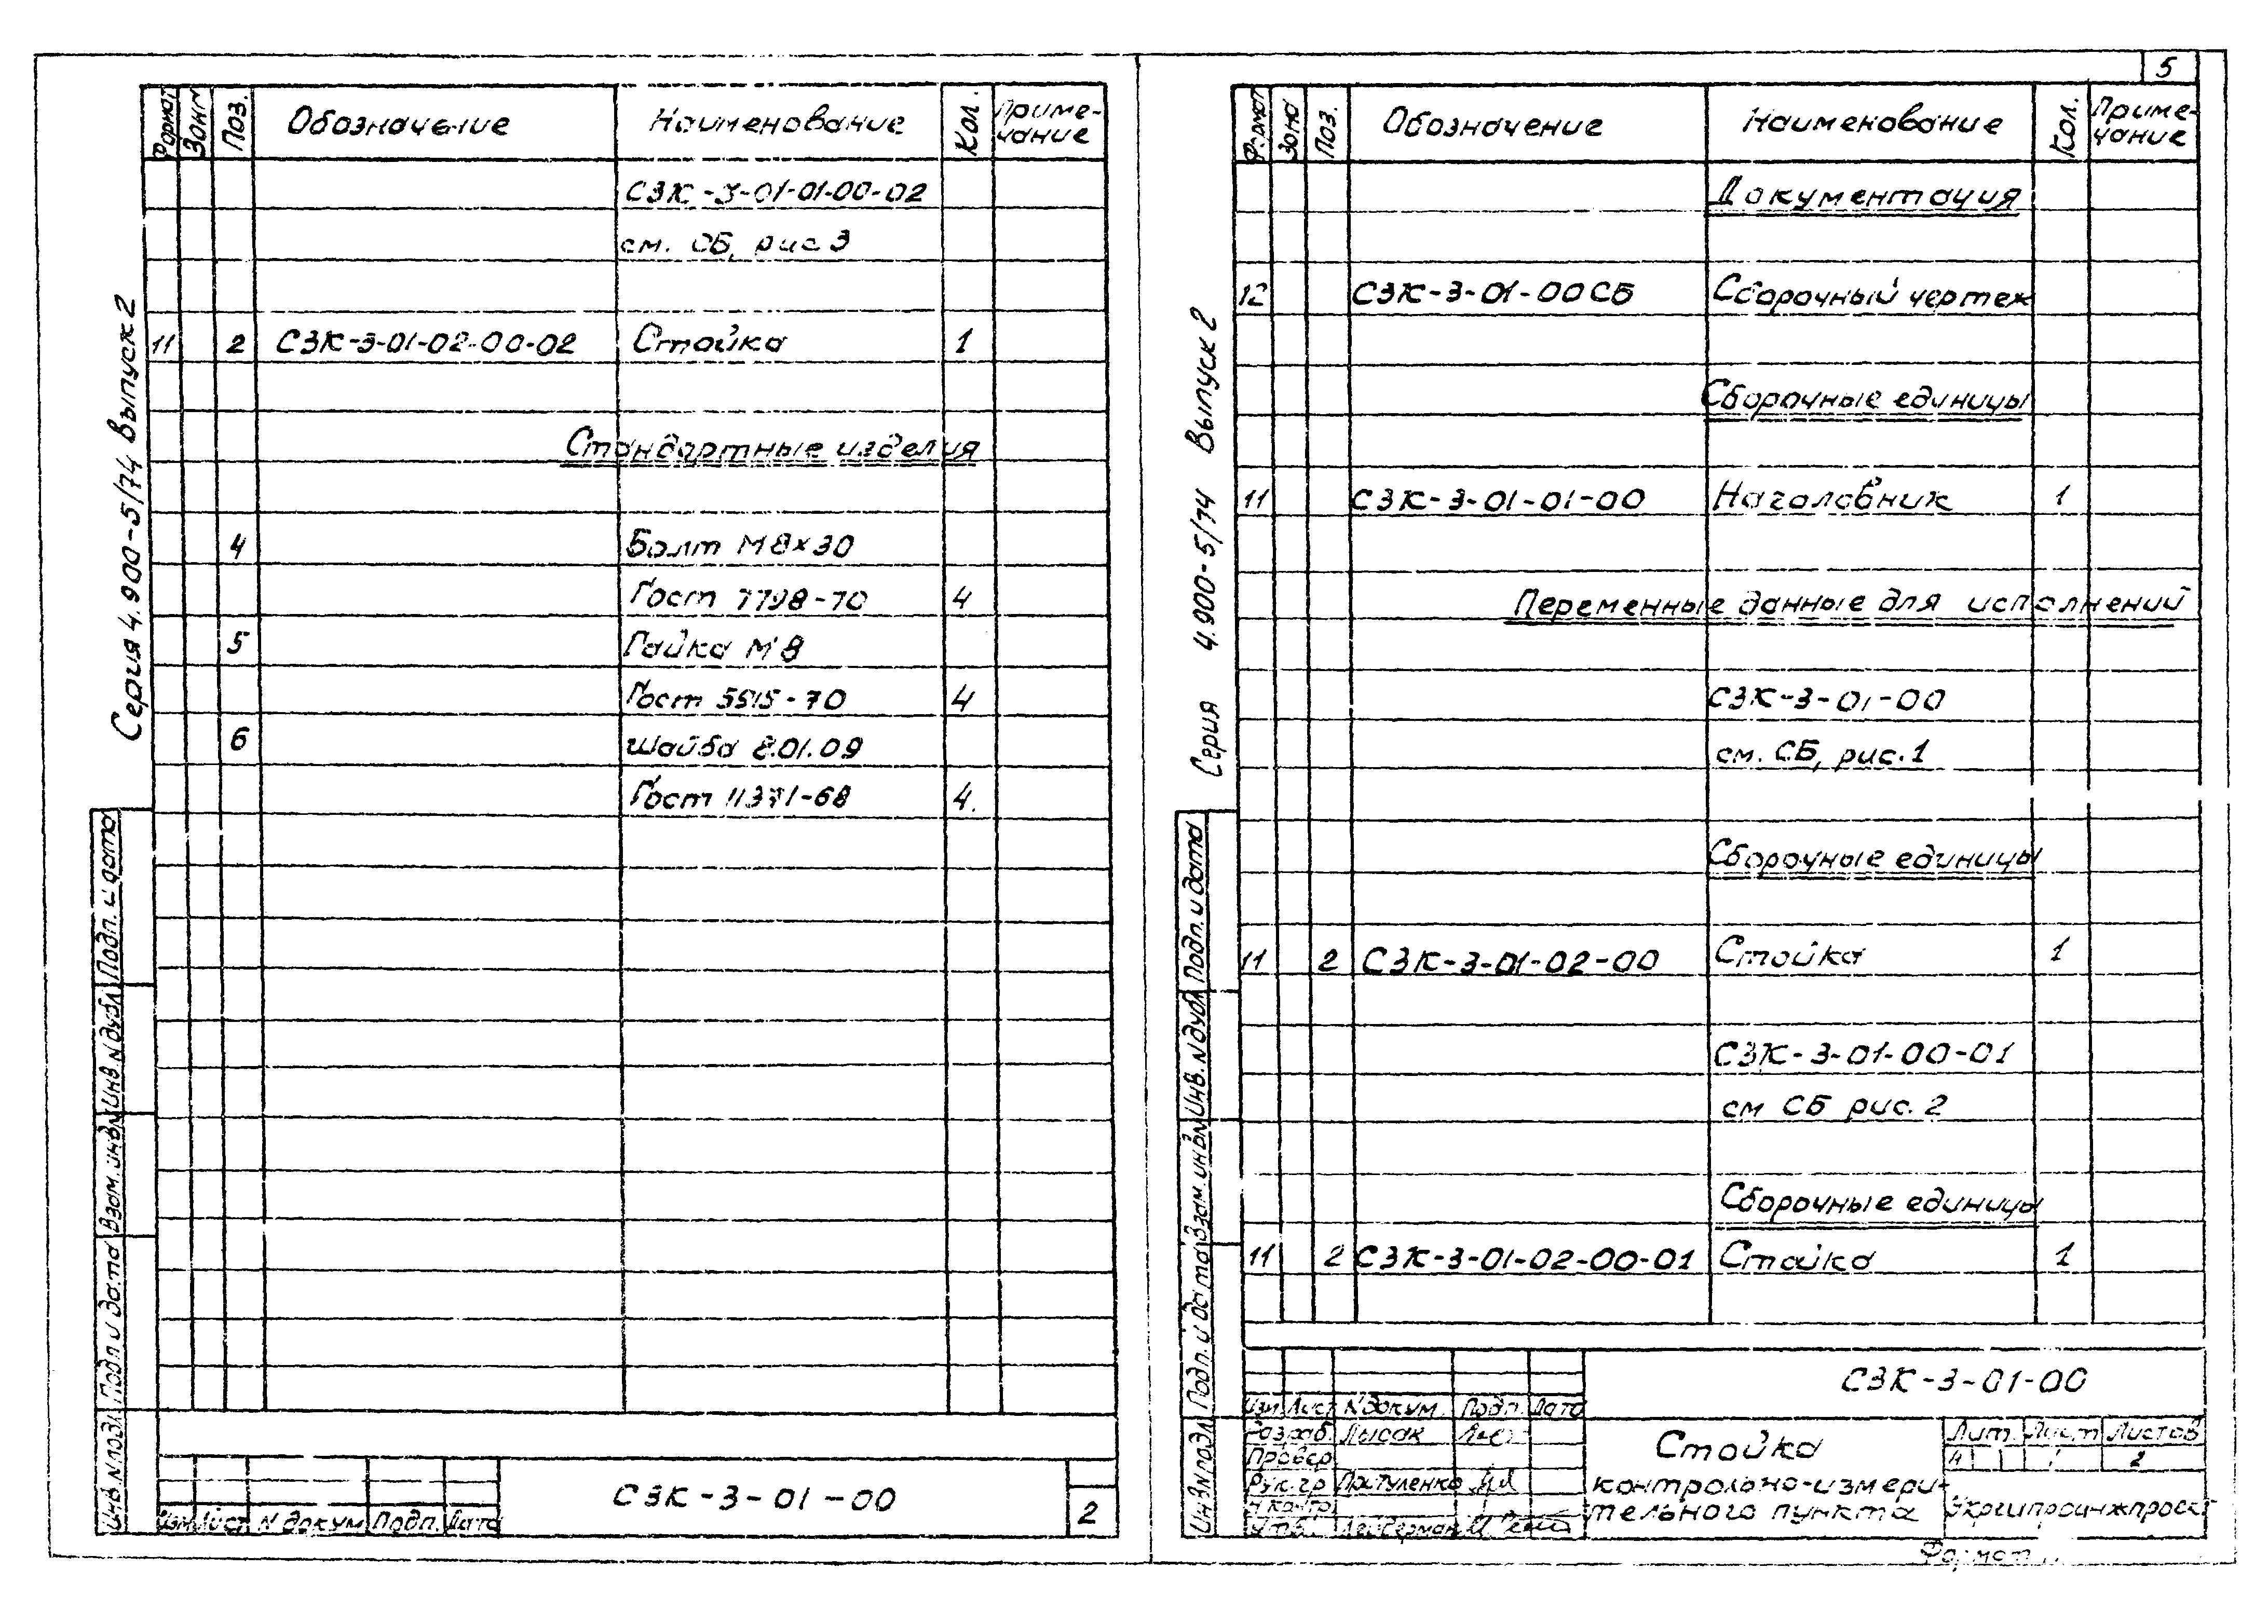 Серия 4.900-5/74 Выпуск 2
Формат Зона Поз. Обозначение Наименование Кол. Приме-
чание
СЗК-3-01-01-00-02
см. СБ, рис 3
11 2 СЗК-3-01-02-00-02 Стойка 1
Стандартные изделия
4 Болт М8х30
Гост 7798-70 4
5 Гайка М8
Гост 5915-70 4
6 Шайба 8.01.09
Гост 11371-68 4.
Подп. и дата
Инв. N дубл
Взам. инв N
Подп и дата
Инв. N подл.
Изм Лист N докум Подп. Дата
СЗК-3-01-00
2
5
Серия 4.900-5/74 Выпуск 2
Формат Зона Поз. Обозначение Наименование Кол. Приме-
чание
Документация
12 СЗК-3-01-00СБ Сборочный чертеж
Сборочные единицы
11 СЗК-3-01-01-00 Наголовник 1
Переменные данные для исполнений
СЗК-3-01-00
см. СБ, рис. 1
Сборочные единицы
11 2 СЗК-3-01-02-00 Стойка 1
СЗК-3-01-00-01
см СБ рис. 2
Сборочные единицы
11 2 СЗК-3-01-02-00-01 Стойка 1
Подп. и дата
Инв. N дубл
Взам. инв N
Подп. и дата
Инв N подл
СЗК-3-01-00
Изм Лист N докум. Подп. Дата
Разраб. Лысак
Провер
Рук. гр
Н контр
Утв.
Стойка
контрольно-измери-
тельного пункта
Лит. Лист Листов
2
Укргипроинжпроект
Формат